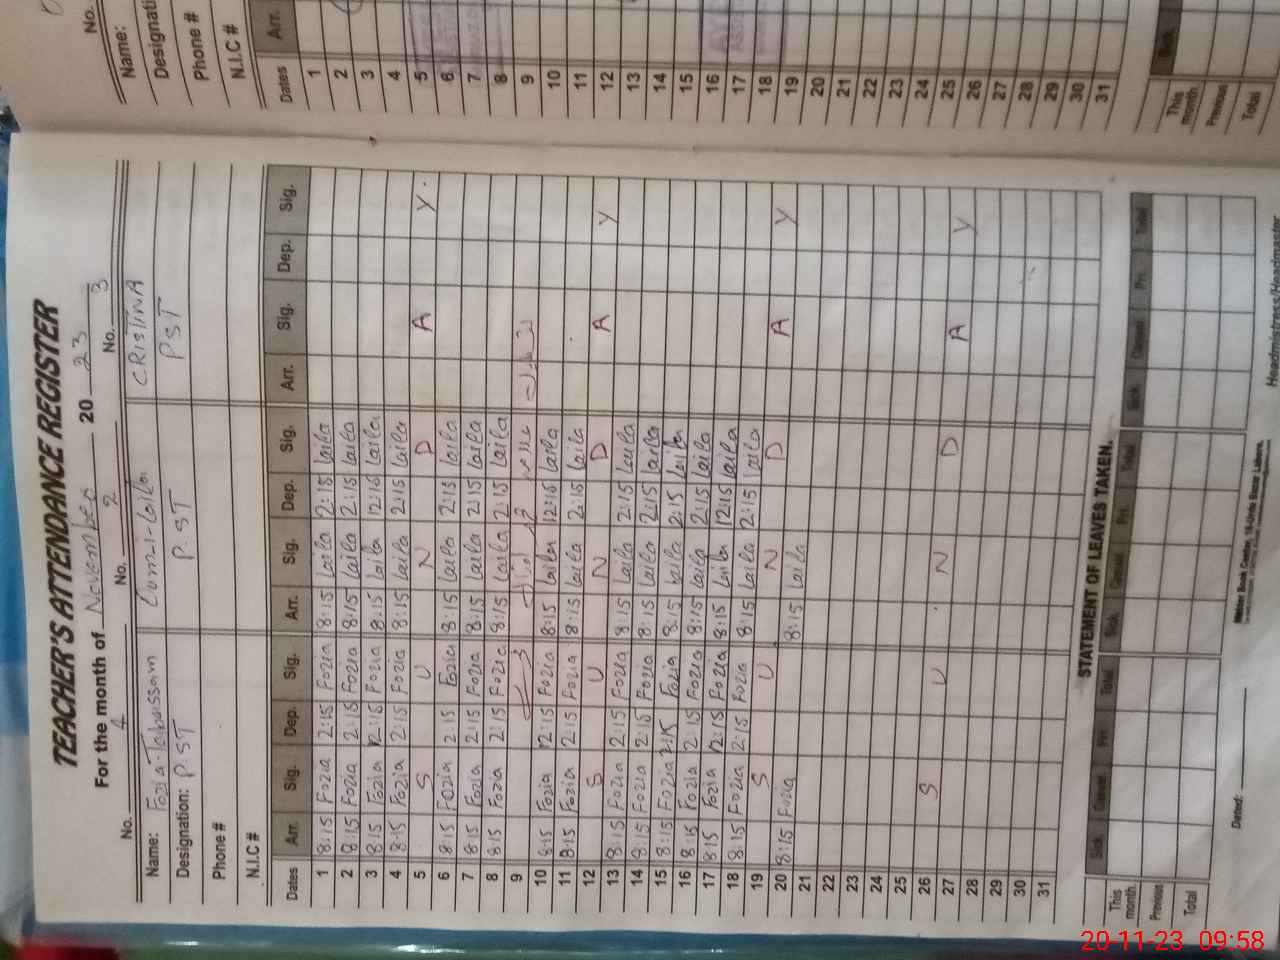 TEACHER'S ATTENDANCE REGISTER
For the month of November 2023
No. 4 No. 2 No. 3
Name: Fozia-Tabassam Lumi-Laila CRISTINA
Designation: P.ST P.ST PST
Phone #
N.I.C #
Dates Arr. Sig. Dep. Sig. Arr. Sig. Dep. Sig. Arr. Sig. Dep. Sig.
1 8:15 Fozia 2:15 Fozia 8:15 laila 2:15 laila
2 8:15 Fozia 2:15 Fozia 8:15 laila 2:15 laila
3 8:15 Fozia 12:15 Fozia 8:15 laila 12:15 laila
4 8:15 Fozia 2:15 Fozia 8:15 laila 2:15 laila
5 S U N D A Y
6 8:15 Fozia 2:15 Fozia 8:15 laila 2:15 laila
7 8:15 Fozia 2:15 Fozia 8:15 laila 2:15 laila
8 8:15 Fozia 2:15 Fozia 8:15 laila 2:15 laila
9
10 8:15 Fozia 12:15 Fozia 8:15 laila 12:15 laila
11 8:15 Fozia 2:15 Fozia 8:15 laila 2:15 laila
12 S U N D A Y
13 8:15 Fozia 2:15 Fozia 8:15 laila 2:15 laila
14 8:15 Fozia 2:15 Fozia 8:15 laila 2:15 laila
15 8:15 Fozia 2:15 Fozia 8:15 laila 2:15 laila
16 8:15 Fozia 2:15 Fozia 8:15 laila 2:15 laila
17 8:15 Fozia 12:15 Fozia 8:15 laila 12:15 laila
18 8:15 Fozia 2:15 Fozia 8:15 laila 2:15 laila
19 S U N D A Y
20 8:15 Fozia 8:15 laila
21
22
23
24
25
26 S U N D A Y
27
28
29
30
31
STATEMENT OF LEAVES TAKEN.
Sick Casual Pri. Total Sick Casual Pri. Total Sick Casual Pri. Total
This month
Previous
Total
Dated:
Headmistress/Headmaster
No.
Name:
Designati
Phone #
N.I.C #
Dates Arr.
1
2
3
4
5
6
7
8
9
10
11
12
13
14
15
16
17
18
19
20
21
22
23
24
25
26
27
28
29
30
31
Sick
This month
Previous
Total
20-11-23 09:58